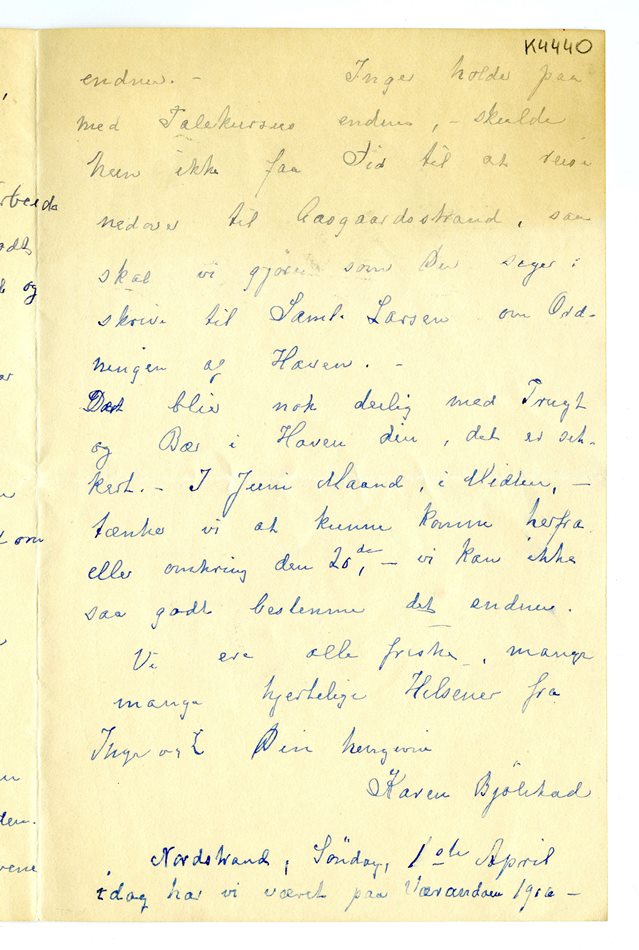 K4440
endnu. — Inger holder paa
med Talekursus endnu, — skulde
hun ikke faa Tid til at reise
nedover til Aasgaardsstrand, saa
skal vi gjøre som Du siger:
skrive til Saml. Larsen om Ord-
ningen af Haven. —
Det bliver nok deilig med Frugt
og Bær i Haven din, det er sik-
kert. — I Juni Maaned, i Midten, —
tænker vi at kunne komme herfra
eller omkring den 20de, — vi kan ikke
saa godt bestemme det endnu.
Vi ere alle friske, mange
mange hjertelige Hilsener fra
Inger og Din hengivne
Karen Bjölstad
Nordstrand, Söndag, 1ste April
idag har vi været paa Værandaen